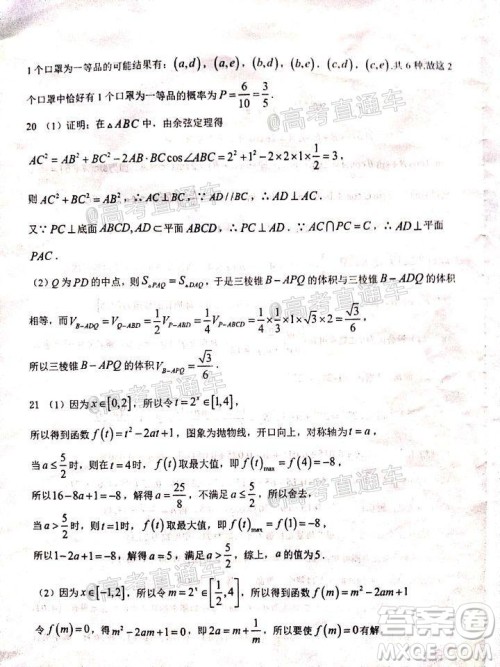 1 个口罩为一等品的可能结果有：(a,d)，(a,e)，(b,d)，(b,e)，(c,d)，(c,e).共 6 种.故这 2
个口罩中恰好有 1 个口罩为一等品的概率为 P = 6/10 = 3/5.
20 （1）证明：在△ABC 中，由余弦定理得
AC² = AB² + BC² − 2AB·BC cos∠ABC = 2² + 1² − 2×2×1×1/2 = 3，
则 AC² + BC² = AB²，∴AC⊥BC，∵AD//BC，∴AD⊥AC.
又∵PC⊥底面ABCD,AD⊂平面ABCD，∴PC⊥AD，∵AC∩PC=C，∴AD⊥平面
PAC.
（2）Q 为 PD 的中点，则 S△PAQ = S△DAQ，于是三棱锥 B−APQ 的体积与三棱锥 B−ADQ 的体积
相等，而 V_{B−ADQ} = V_{Q−ABD} = 1/2 V_{P−ABD} = 1/4 V_{P−ABCD} = 1/4 × 1/3 × 1 × √3 × 2 = √3/6.
所以三棱锥 B−APQ 的体积 V_{B−APQ} = √3/6.
21 （1）因为 x∈[0,2]，所以令 t = 2ˣ∈[1,4]，
所以得到函数 f(t) = t² − 2at + 1，图象为抛物线，开口向上，对称轴为 t = a，
当 a ≤ 5/2 时，则在 t = 4 时，f(t) 取最大值，即 f(t)max = f(4) = −8，
所以 16 − 8a + 1 = −8，解得 a = 25/8，不满足 a ≤ 5/2，所以舍去，
当 a > 5/2 时，则 t = 1 时，f(t) 取最大值，即 f(t)max = f(1) = −8，
所以 1 − 2a + 1 = −8，解得 a = 5，满足 a > 5/2，综上，a 的值为 5.
（2）因为 x∈[−1,2]，所以令 m = 2ˣ∈[1/2,4]，所以得到函数 f(m) = m² − 2am + 1
令 f(m) = 0，得 m² − 2am + 1 = 0，即 2a = m + 1/m，所以要使 f(m) = 0 有解
@高考直通车
@高考直通车
@高考直通车
@高考直通车
答案圈
MXQE.COM